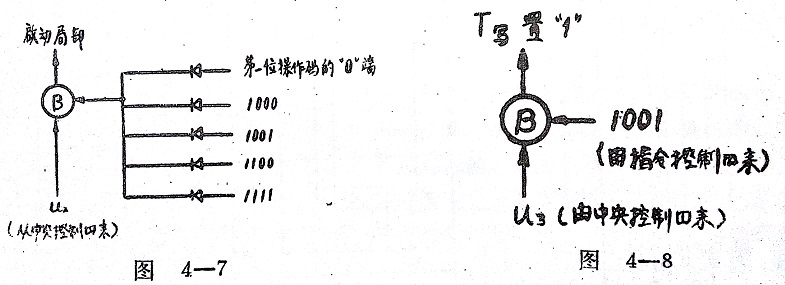 启动局部
第一位操作码的"0"端
B
1000
1001
1100
1111
u₂
(从中央控制四来)
图 4—7
T写 置"1"
B
1001
(由指令控制四来)
u3 (由中央控制四来)
图 4—8